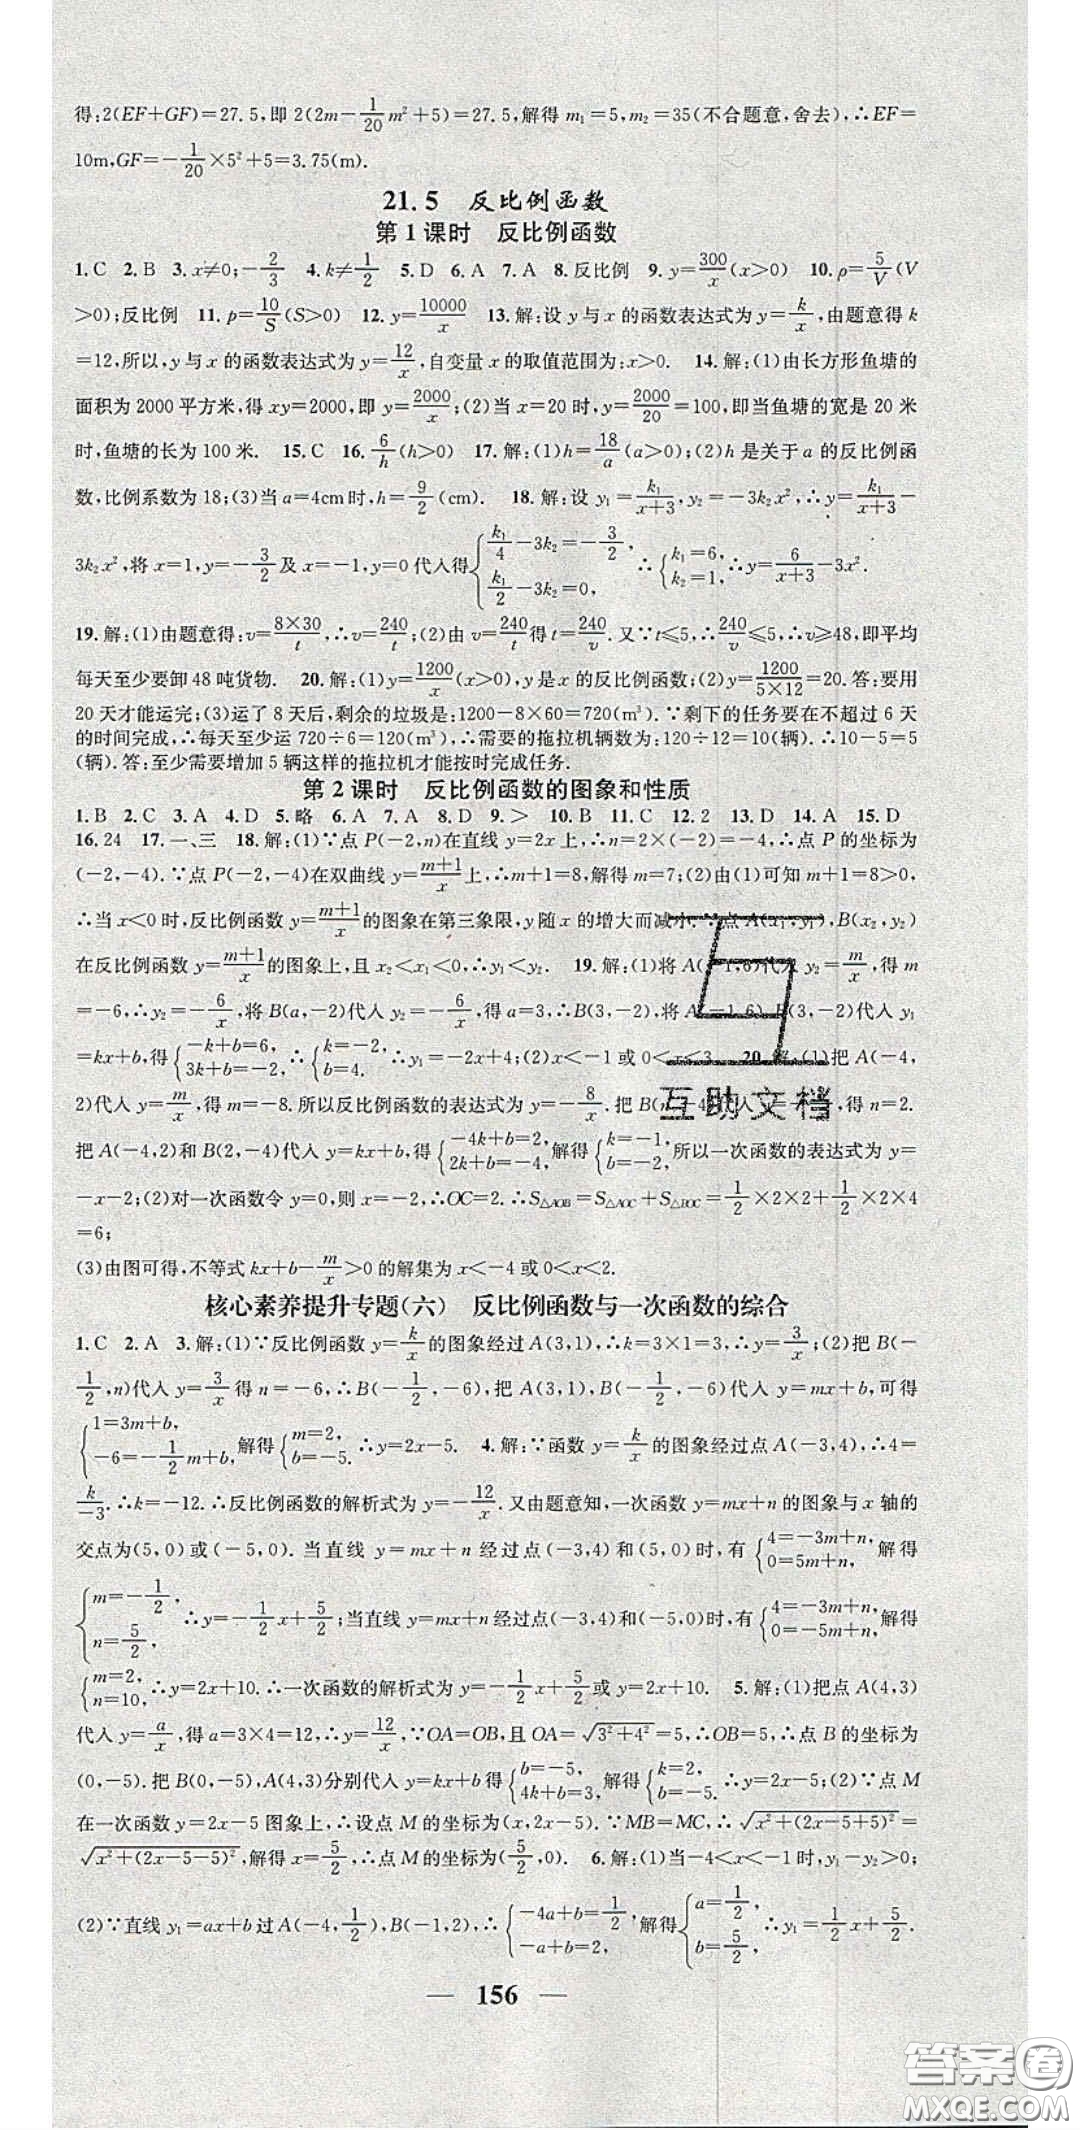 得:2(EF+GF)=27.5,即 2(2m-1/20m²+5)=27.5,解得 m₁=5,m₂=35(不合题意,舍去),∴EF=
10m,GF=-1/20×5²+5=3.75(m).
21.5 反比例函数
第 1 课时 反比例函数
1.C 2.B 3.x≠0;-2/3 4.k≠1/2 5.D 6.A 7.A 8.反比例 9.y=300/x(x>0) 10.ρ=5/V(V
>0);反比例 11.p=10/S(S>0) 12.y=10000/x 13.解:设 y 与 x 的函数表达式为 y=k/x,由题意得 k
=12,所以,y 与 x 的函数表达式为 y=12/x,自变量 x 的取值范围为:x>0. 14.解:(1)由长方形鱼塘的
面积为 2000 平方米,得 xy=2000,即 y=2000/x;(2)当 x=20 时,y=2000/20=100,即当鱼塘的宽是 20 米
时,鱼塘的长为 100 米. 15.C 16.6/h(h>0) 17.解:(1)h=18/a(a>0);(2)h 是关于 a 的反比例函
数,比例系数为 18;(3)当 a=4cm 时,h=9/2(cm). 18.解:设 y₁=k₁/(x+3),y₂=-3k₂x²,∴y=k₁/(x+3)-
3k₂x²,将 x=1,y=-3/2及 x=-1,y=0 代入得{k₁/4-3k₂=-3/2, k₁/2-3k₂=0, ∴{k₁=6, k₂=1, ∴y=6/(x+3)-3x².
19.解:(1)由题意得:v=8×30/t,∴v=240/t;(2)由 v=240/t得 t=240/v.又∵t≤5,∴240/v≤5,∴v≥48,即平均
每天至少要卸 48 吨货物. 20.解:(1)y=1200/x(x>0),y 是 x 的反比例函数;(2)y=1200/(5×12)=20.答:要用
20 天才能运完;(3)运了 8 天后,剩余的垃圾是:1200-8×60=720(m³).∵剩下的任务要在不超过 6 天
的时间完成,∴每天至少运 720÷6=120(m³),∴需要的拖拉机辆数为:120÷12=10(辆).∴10-5=5
(辆).答:至少需要增加 5 辆这样的拖拉机才能按时完成任务.
第 2 课时 反比例函数的图象和性质
1.B 2.C 3.A 4.D 5.略 6.A 7.A 8.D 9.> 10.B 11.C 12.2 13.D 14.A 15.D
16.24 17.一、三 18.解:(1)∵点 P(-2,n)在直线 y=2x 上,∴n=2×(-2)=-4,∴点 P 的坐标为
(-2,-4).∵点 P(-2,-4)在双曲线 y=(m+1)/x上,∴m+1=8,解得 m=7;(2)由(1)可知 m+1=8>0,
∴当 x<0 时,反比例函数 y=(m+1)/x的图象在第三象限,y 随 x 的增大而减小.∵点 A(x₁,y₁),B(x₂,y₂)
在反比例函数 y=(m+1)/x的图象上,且 x₂<x₁<0,∴y₁<y₂. 19.解:(1)将 A(-1,6)代入 y₂=m/x,得 m
=-6,∴y₂=-6/x,将 B(a,-2)代入 y₂=-6/x,得 a=3,∴B(3,-2),将 A(-1,6),B(3,-2)代入 y₁
=kx+b,得{-k+b=6, 3k+b=-2, ∴{k=-2, b=4. ∴y₁=-2x+4;(2)x<-1 或 0<x<3. 20.解:(1)把 A(-4,
2)代入 y=m/x,得 m=-8.所以反比例函数的表达式为 y=-8/x.把 B(n,-4)代入 y=-8/x,得 n=2.
把 A(-4,2)和 B(2,-4)代入 y=kx+b,得{-4k+b=2, 2k+b=-4, 解得{k=-1, b=-2, 所以一次函数的表达式为 y=
-x-2;(2)对一次函数令 y=0,则 x=-2,∴OC=2.∴S△AOB=S△AOC+S△BOC=1/2×2×2+1/2×2×4
=6;
(3)由图可得,不等式 kx+b-m/x>0 的解集为 x<-4 或 0<x<2.
核心素养提升专题(六) 反比例函数与一次函数的综合
1.C 2.A 3.解:(1)∵反比例函数 y=k/x的图象经过 A(3,1),∴k=3×1=3,∴y=3/x;(2)把 B(-
1/2,n)代入 y=3/x得 n=-6,∴B(-1/2,-6),把 A(3,1),B(-1/2,-6)代入 y=mx+b,可得
{1=3m+b, -6=-1/2m+b, 解得{m=2, b=-5. ∴y=2x-5. 4.解:∵函数 y=k/x的图象经过点 A(-3,4),∴4=
k/-3.∴k=-12.∴反比例函数的解析式为 y=-12/x.又由题意知,一次函数 y=mx+n 的图象与 x 轴的
交点为(5,0)或(-5,0).当直线 y=mx+n 经过点(-3,4)和(5,0)时,有{4=-3m+n, 0=5m+n, 解得
{m=-1/2, n=5/2, ∴y=-1/2x+5/2;当直线 y=mx+n 经过点(-3,4)和(-5,0)时,有{4=-3m+n, 0=-5m+n, 解得
{m=2, n=10, ∴y=2x+10.∴一次函数的解析式为 y=-1/2x+5/2或 y=2x+10. 5.解:(1)把点 A(4,3)
代入 y=a/x,得 a=3×4=12,∴y=12/x,∵OA=OB,且 OA=√(3²+4²)=5,∴OB=5,∴点 B 的坐标为
(0,-5).把 B(0,-5),A(4,3)分别代入 y=kx+b 得{b=-5, 4k+b=3, 解得{k=2, b=-5. ∴y=2x-5;(2)∵点 M
在一次函数 y=2x-5 图象上,∴设点 M 的坐标为(x,2x-5).∵MB=MC,∴√(x²+(2x-5+5)²)=
√(x²+(2x-5-5)²),解得 x=5/2,∴点 M 的坐标为(5/2,0). 6.解:(1)当-4<x<-1 时,y₁-y₂>0;
(2)∵直线 y₁=ax+b 过 A(-4,1/2),B(-1,2),∴{-4a+b=1/2, -a+b=2, 解得{a=1/2, b=5/2, ∴y₁=1/2x+5/2.
— 156 —
互助文档
答案圈
MXQE.COM